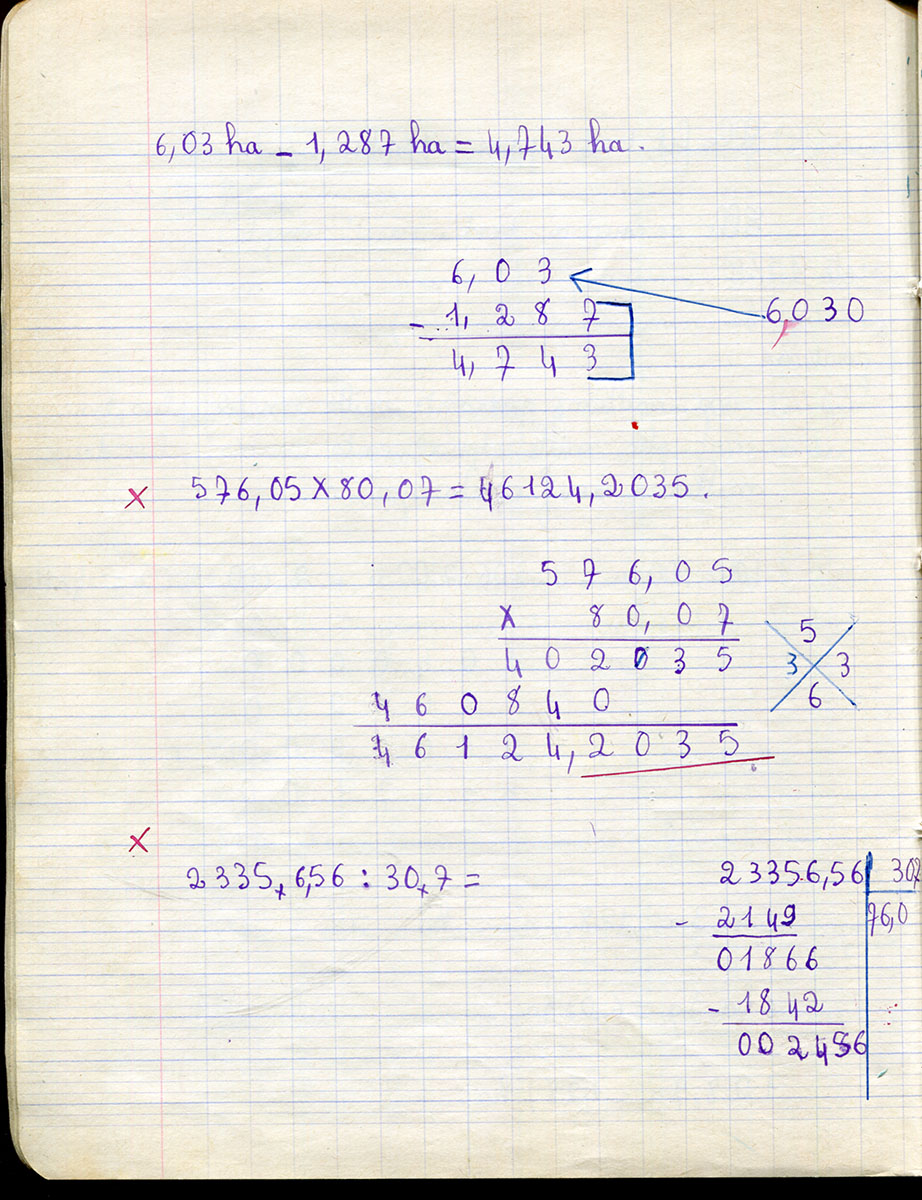 6,03 ha - 1,287 ha = 4,743 ha.
6,03
6,030
- 1,287
4,743
x 576,05 x 80,07 = 46124,2035.
576,05
x 80,07
5
402035
3 3
6
460840
46124,2035
x
2335,6,56 : 30,7 =
23356,56 307
- 2149 76,0
01866
- 1842
002456